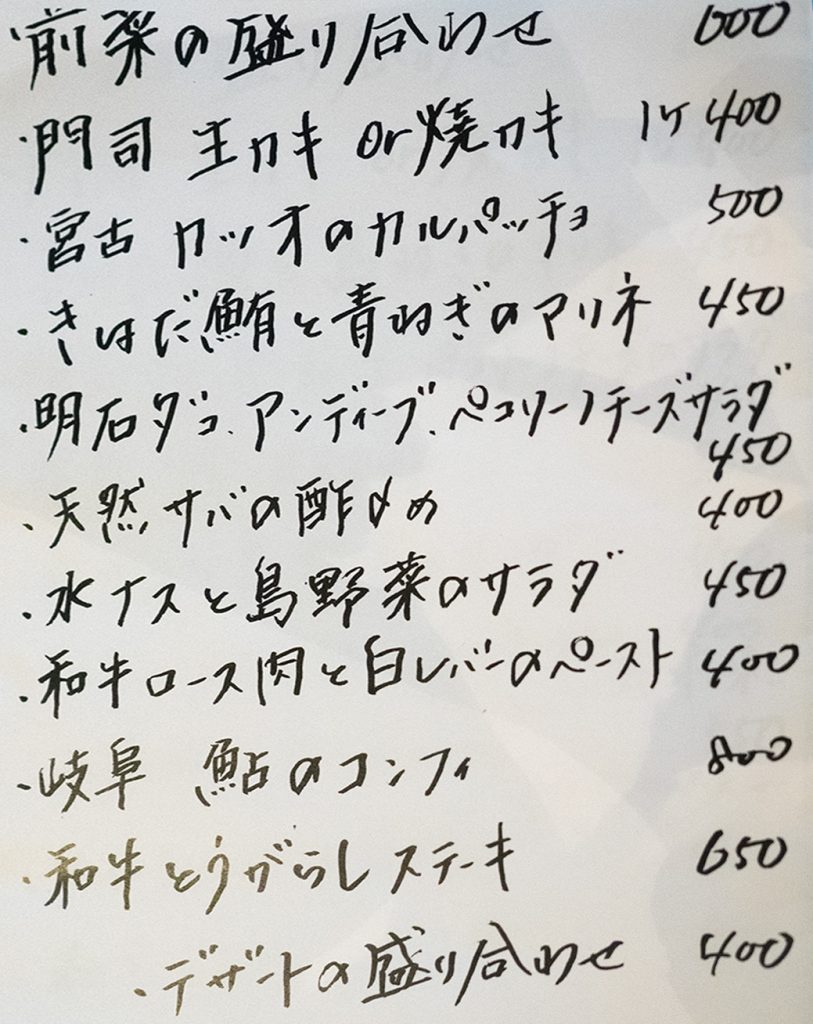 ・前菜の盛り合わせ 600
・門司 生カキ or 焼カキ 1ケ 400
・宮古 カツオのカルパッチョ 500
・きはだ鮪と青ねぎのマリネ 450
・明石ダコ、アンディーブ、ペコリーノチーズサラダ
450
・天然サバの酢〆め 400
・水ナスと島野菜のサラダ 450
・和牛ロース肉と白レバーのペースト 400
・岐阜 鮎のコンフィ 800
・和牛とうがらしステーキ 650
・デザートの盛り合わせ 400